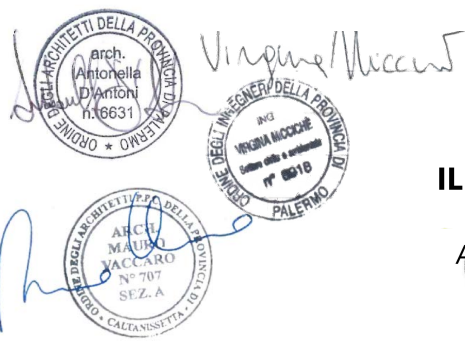 ORDINE DEGLI ARCHITETTI DELLA PROVINCIA DI PALERMO
arch.
Antonella
D'Antoni
n. 6631
Virginia Miccichè
ORDINE DEGLI INGEGNERI DELLA PROVINCIA DI PALERMO
ING
VIRGINIA MICCICHÈ
Settore civile e ambientale
n° 8918
IL
ORDINE DEGLI ARCHITETTI P.P.C. DELLA PROVINCIA DI CALTANISSETTA
ARCH.
MAURO
VACCARO
N° 707
SEZ. A
A